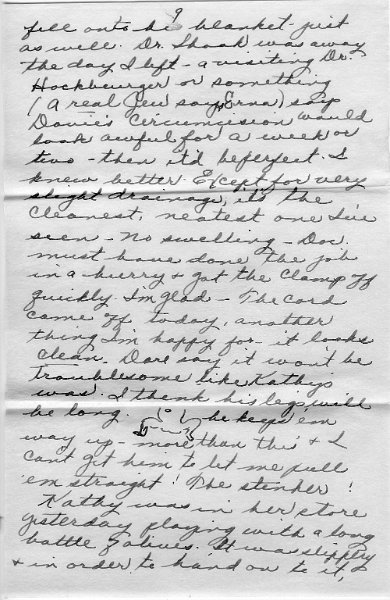 9
fell onto his blanket just
as well. Dr. Shook was away
the day I left - a visiting Dr.
Hockburger or something
(a real Jew says Erna) said
Davie's circumcision would
look awful for a week or
two - then it'd be perfect. I
knew better. Except for very
slight drainage, it's the
cleanest, neatest one I've
seen - No swelling - Doc.
must have done the job
in a hurry & got the clamp off
quickly. I'm glad - The cord
came off today, another
thing I'm happy for - it looks
clean. Dare say it won't be
troublesome like Kathy's
was. I think his legs will
be long. he keeps 'em
way up - more than this & I
can't get him to let me pull
'em straight! The stinker!
Kathy was in her store
yesterday playing with a long
bottle of olives. It was slippery
& in order to hand on to it,